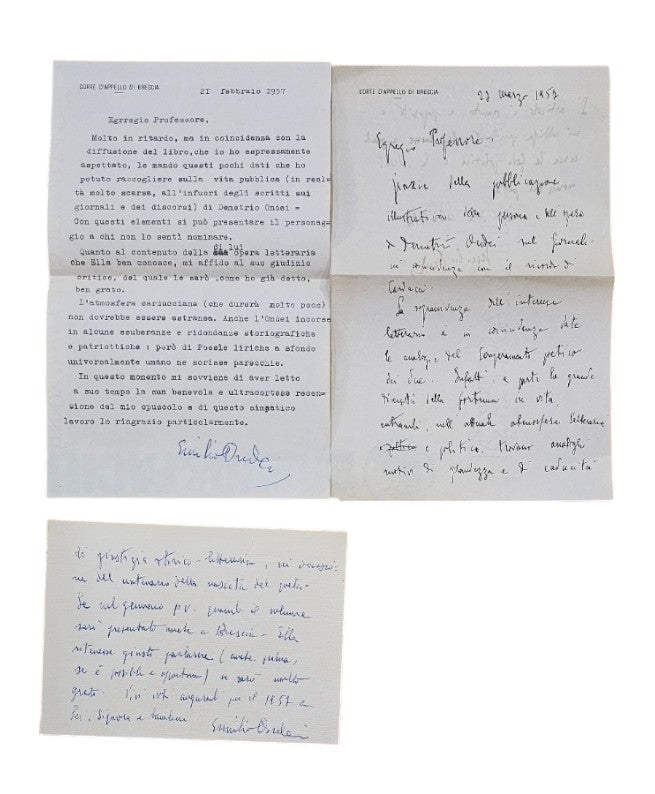 CORTE D'APPELLO DI BRESCIA
21 febbraio 1957
Egrregio Professore,
Molto in ritardo, ma in coincidenza con la
diffusione del libro, che io ho espressamente
aspettato, le mando questi pochi dati che ho
potuto raccogliere sulla vita pubblica (in real=
tà molto scarsa, all'infuori degli scritti sui
giornali e dei discorsi) di Demetrio Ondei =
Con questi elementi si può presentare il personag=
gio a chi non lo sentì nominare.
di lui
Quanto al contenuto della opera letteraria
che Ella ben conosce, mi affido al suo giudizio
critico, del quale Le sarò, come ho già detto,
ben grato.
L'atmosfera carducciana (che durerà molto poco)
non dovrebbe essere estranea. Anche l'Ondei incorse
in alcune esuberanze e ridondanze storiografiche
e patriottiche : però di Poesie liriche a sfondo
universalmente umano ne scrisse parecchie.
In questo momento mi sovviene di aver letto
a suo tempo la sua benevola e ultracortese recen=
sione del mio opuscolo e di questo simpatico
lavoro lo ringrazio particolarmente.
Emilio Ondei
CORTE D'APPELLO DI BRESCIA
23 marzo 1957
Egregio Professore -
grazie della pubblicazione
illustrativa della persona e dell'opera
di Demetrio Ondei sul giornale -
in coincidenza con il ricordo di
Carducci -
La sopravvivenza dell'interesse
letterario è in coincidenza date
le analogie del temperamento poetico
dei due. Infatti, a parte la grande
disparità della fortuna in vita,
entrambi, nell'attuale atmosfera letteraria
e politica, trovano analoghi
motivi di grandezza e di caducità
di giustizia storico-letteraria, in occasio-
ne del centenario della nascita del poeta -
Se nel gennaio p.v. quando il volume
sarà presentato anche a Brescia - Ella
ritenesse giusto parlarne (anche prima,
se è possibile e opportuno) ne sarò molto
grato. Vivi voti augurali per il 1957 a
Lei, Signora e bambini
Emilio Ondei